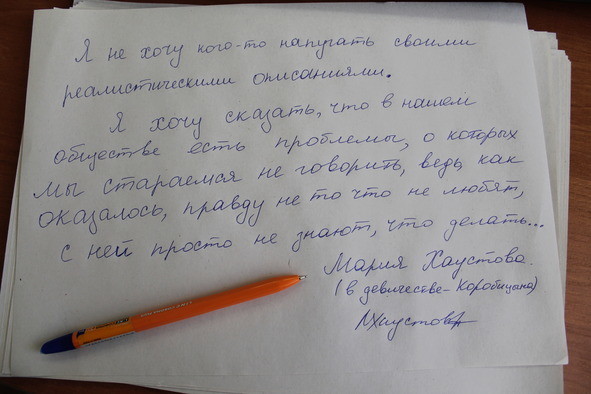 Я не хочу кого-то напугать своими
реалистическими описаниями.
Я хочу сказать, что в нашем
обществе есть проблемы, о которых
мы стараемся не говорить, ведь, как
оказалось, правду не то что не любят,
с ней просто не знают, что делать...
Мария Хаустова.
(в девичестве - Коробицына)